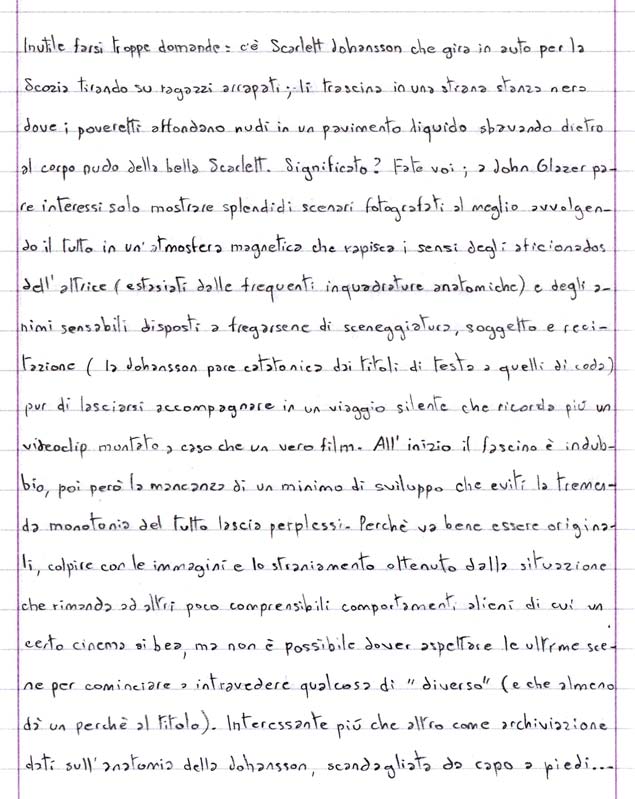 Inutile farsi troppe domande: c'è Scarlett Johansson che gira in auto per la
Scozia tirando su ragazzi arrapati; li trascina in una strana stanza nera
dove i poveretti affondano nudi in un pavimento liquido sbavando dietro
al corpo nudo della bella Scarlett. Significato? Fate voi; a John Glazer pa-
re interessi solo mostrare splendidi scenari fotografati al meglio avvolgen-
do il tutto in un'atmosfera magnetica che rapisca i sensi degli aficionados
dell'attrice (estasiati dalle frequenti inquadrature anatomiche) e degli a-
nimi sensabili disposti a fregarsene di sceneggiatura, soggetto e reci-
tazione (la Johansson pare catatonica dai titoli di testa a quelli di coda)
pur di lasciarsi accompagnare in un viaggio silente che ricorda più un
videoclip montato a caso che un vero film. All'inizio il fascino è indub-
bio, poi però la mancanza di un minimo di sviluppo che eviti la tremen-
da monotonia del tutto lascia perplessi. Perchè va bene essere origina-
li, colpire con le immagini e lo straniamento ottenuto dalla situazione
che rimanda ad altri poco comprensibili comportamenti alieni di cui un
certo cinema si bea, ma non è possibile dover aspettare le ultime sce-
ne per cominciare a intravedere qualcosa di "diverso" (e che almeno
dà un perchè al titolo). Interessante più che altro come archiviazione
dati sull'anatomia della Johansson, scandagliata da capo a piedi...